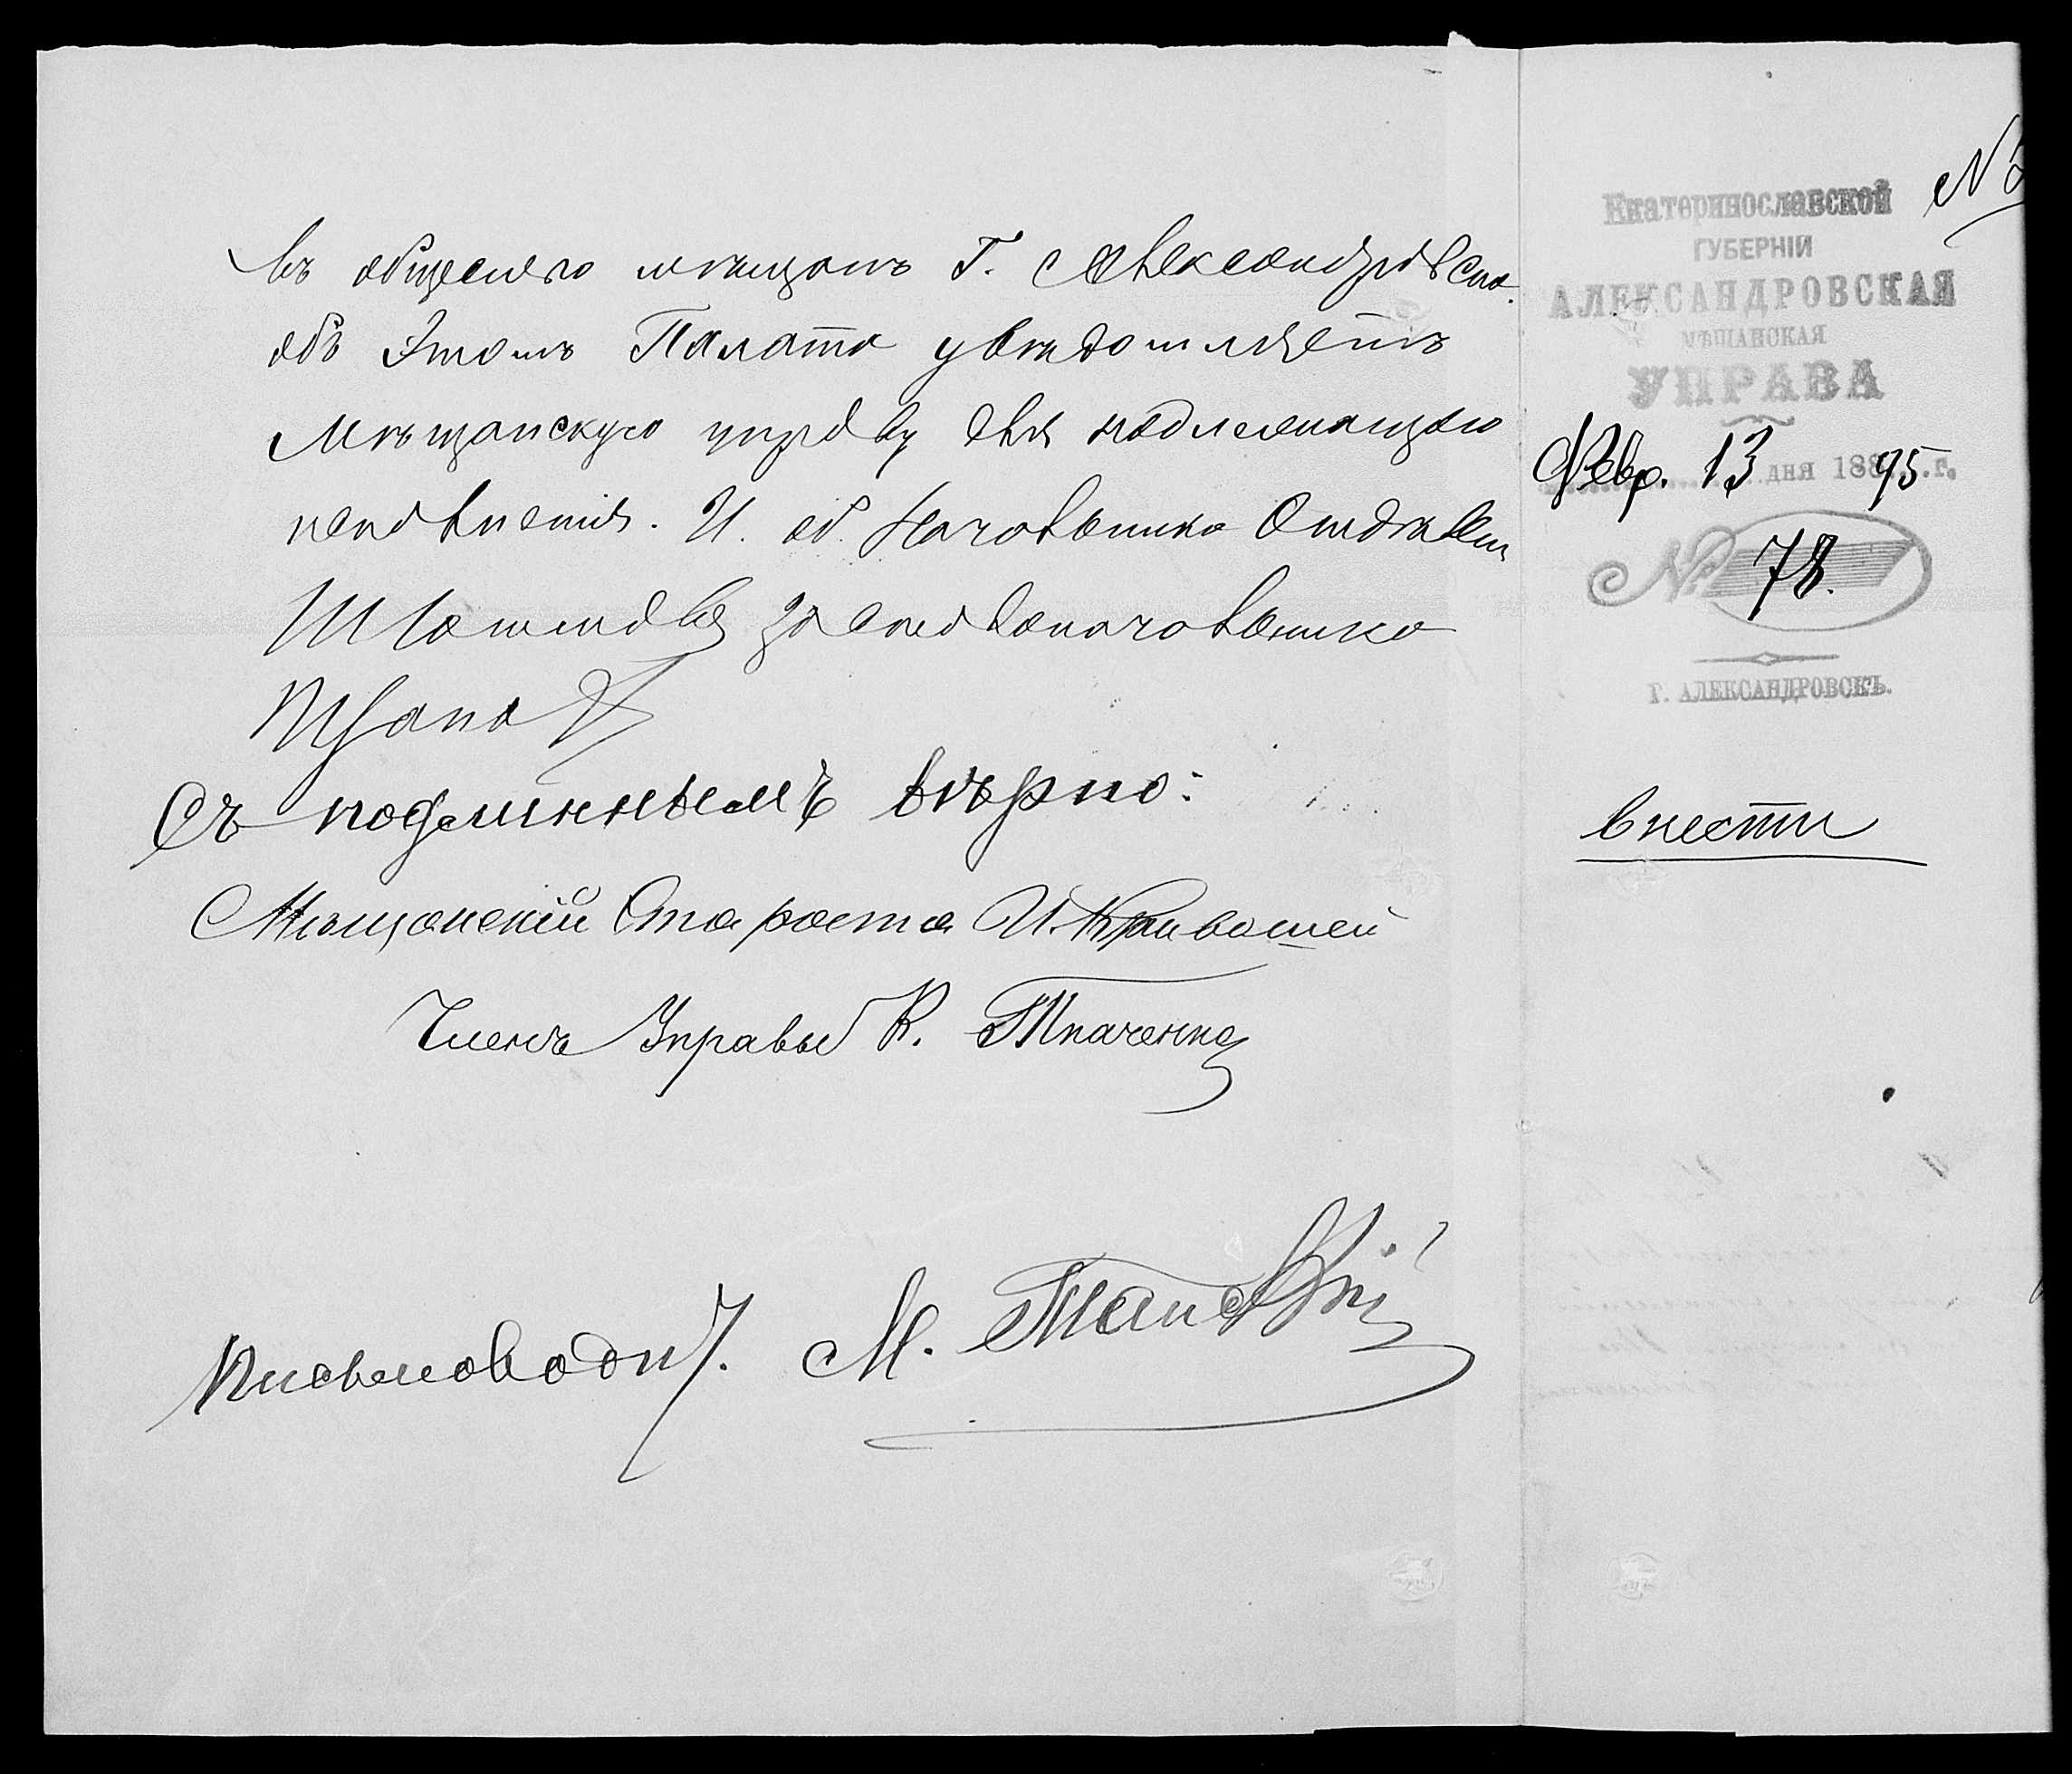 въ общество мѣщанъ г. Александровска.
объ этомъ Палата увѣдомляетъ
Мѣщанскую управу для надлежащаго
исполненія. И. об. Начальника Отдѣленія
за столоначальника
Съ подлиннымъ вѣрно:
Мѣщанскій Староста И Кривошей
Членъ Управы К. Ткаченко
Письмоводит. М.
№
Екатеринославской
ГУБЕРНІИ
АЛЕКСАНДРОВСКАЯ
МѢЩАНСКАЯ
УПРАВА
Февр. 13 дня 188 95 г.
№ 78.
Г. АЛЕКСАНДРОВСКЪ.
внести